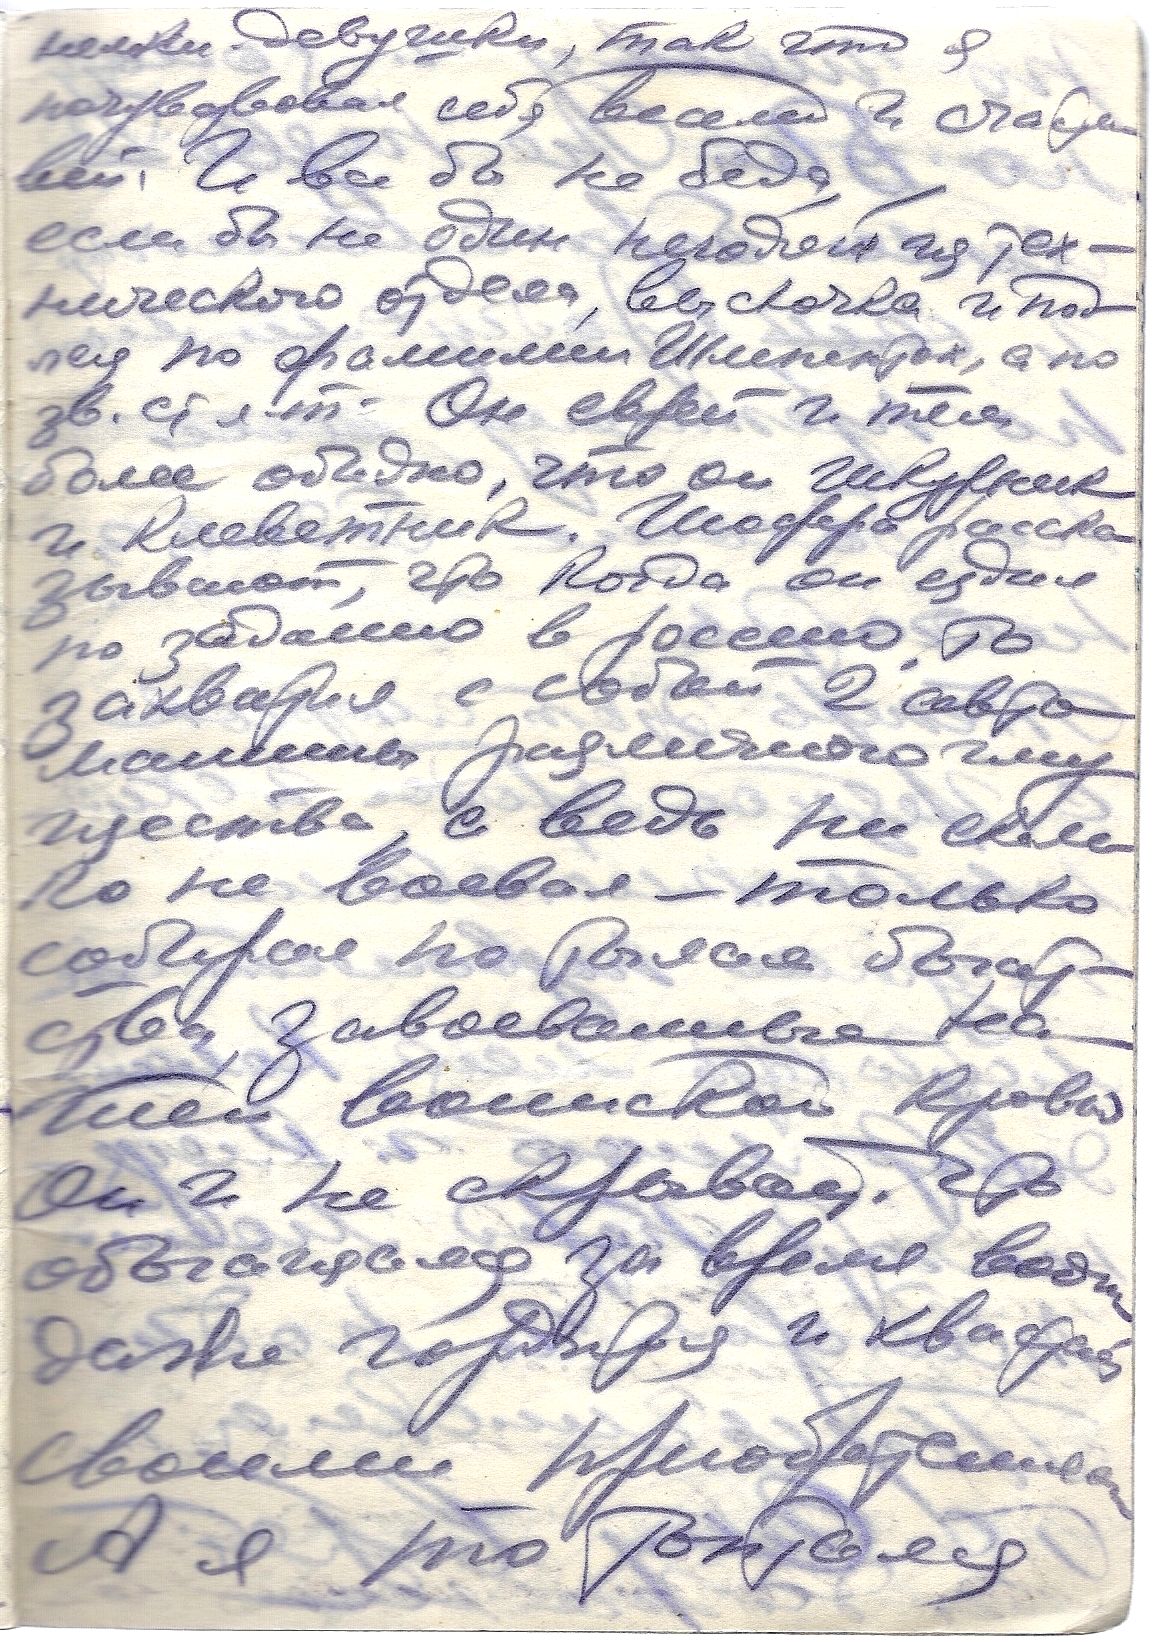 немки девушки, так что я
почувствовал себя весело и счастли
вей. И все бы не беда,
если бы не один негодяй из тех-
нического отдела, выскочка и под
лец по фамилии а по
зв. ст. л-т. Он еврей и тем
более обидно, что он шкурник
и клеветник. Шофера расска
зывают, что когда он ездил
по заданию в россию, то
захватил с собой 2 авто
машины различного иму
щества, а ведь ни сколь
ко не воевал – только
собирал по тылам богат-
ства, завоеванные на-
шей воинской кровью
Он и не скрывает, что
обогащался за время войны
даже гордится и хвастает
своими приобретениями
А я то топтался